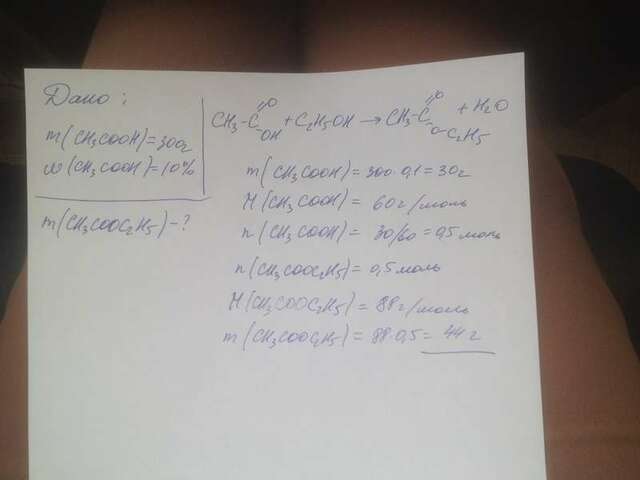 Дано:
m(CH3COOH)=30г
w(CH3COOH)=10%
m(CH3COOC2H5)-?
CH3-C =O OH + C2H5OH → CH3-C =O O-C2H5 + H2O
m(CH3COOH)=300·0,1=30г
M(CH3COOH)=60г/моль
n(CH3COOH)=30/60=0,5моль
n(CH3COOC2H5)=0,5моль
M(CH3COOC2H5)=88г/моль
m(CH3COOC2H5)=88·0,5=44г